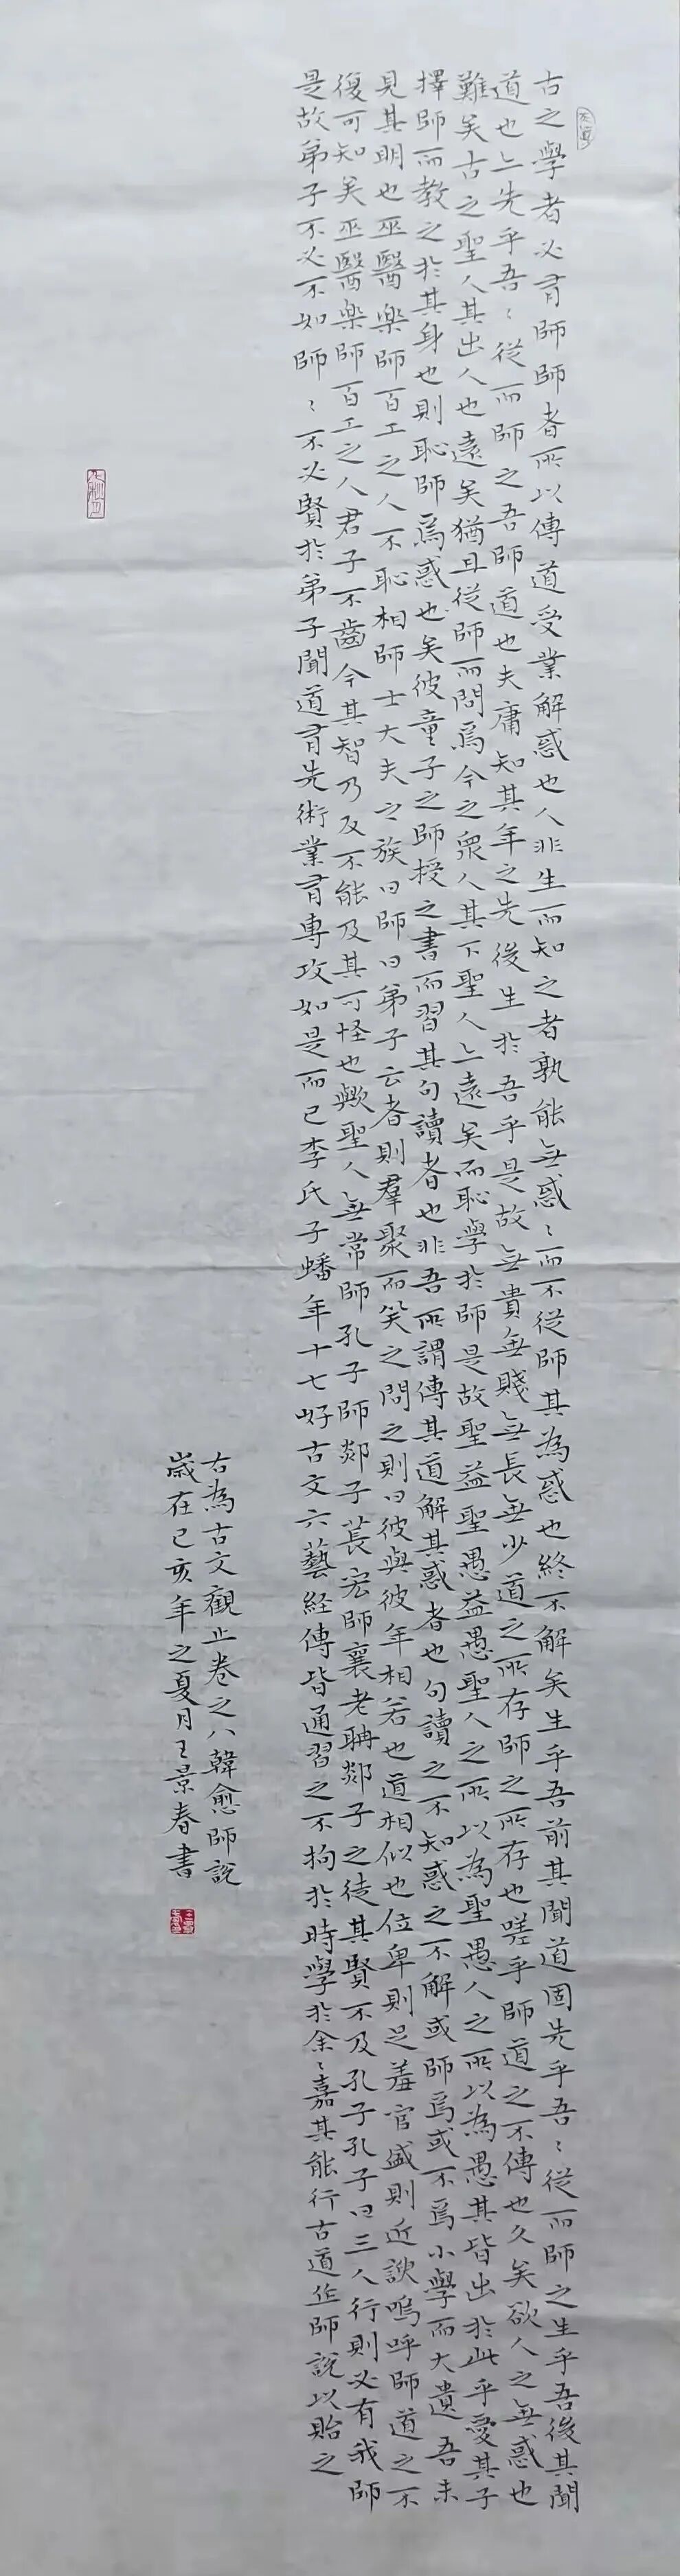 古之學者必有師師者所以傳道受業解惑也人非生而知之者孰能無惑〻而不從師其為惑也終不解矣生乎吾前其聞道固先乎吾〻從而師之生乎吾後其聞
道也亠先乎吾〻從而師之吾師道也夫庸知其年之先後生於吾乎是故無貴無賤無長無少道之所存師之所存也嗟乎師道之不傳也久矣欲人之無惑也
難矣古之聖人其出人也遠矣猶且從師而問焉今之衆人其下聖人亠遠矣而恥學於師是故聖益聖愚益愚聖人之所以為聖愚人之所以為愚其皆出於此乎愛其子
擇師而教之於其身也則恥師焉惑也矣彼童子之師授之書而習其句讀者也非吾所謂傳其道解其惑者也句讀之不知惑之不解或師焉或不焉小學而大遺吾未
見其明也巫醫樂師百工之人不恥相師士大夫之族曰師曰弟子云者則羣聚而笑之問之則曰彼與彼年相若也道相似也位卑則足羞官盛則近諛嗚呼師道之不
復可知矣巫醫樂師百工之人君子不齒今其智乃反不能及其可怪也歟聖人無常師孔子師郯子萇宏師襄老聃郯子之徒其賢不及孔子孔子曰三人行則必有我師
是故弟子不必不如師〻不必賢於弟子聞道有先術業有專攻如是而已李氏子蟠年十七好古文六藝経傳皆通習之不拘於時學於余〻嘉其能行古道作師說以貽之
古為古文觀止卷之八韓愈師說
歲在己亥年之夏月王景春書